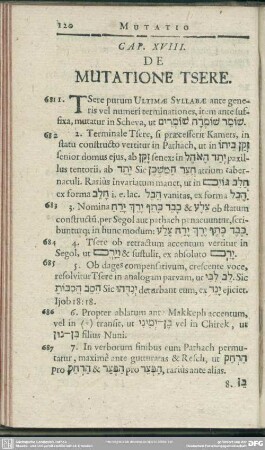 120 MUTATIO
CAP. XVIII.
DE
MUTATIONE TSERE.
681 1. TSere purum ULTIMÆ SYLLABÆ ante gene-
ris vel numeri terminationes, item ante suf-
fixa, mutatur in Scheva, ut שׁוֹמֵר שׁוֹמְרָה שׁוֹמְרִים
682 2. Terminale Tsere, si præcesserit Kamets, in
statu constructo vertitur in Pathach, ut זְקַן בֵּיתוֹ
senior domus ejus, ab זָקֵן senex: in יְתַד הָאֹהֶל paxil-
lus tentorii, ab יָתֵד Sic חֲצַר הַמִּשְׁכָּן atrium taber-
naculi. Rarius invariatum manet, ut
ex forma i. e. lac. הֶבֶל vanitas, ex forma
683 3. Nomina צֵלָע & כָּבֵד כָּתֵף יָרֵךְ גָּדֵר ob statum
constructũ, per Segol aut pathach penacuuntur, scri-
bunturq; in hunc modum:
684 4. Tsere ob retractum accentum vertitur in
Segol, ut וַיָּרֶם & sustulit, ex absoluto
685 5. Ob dages compensativum, crescente voce,
resolvitur Tsere in analogam parvam, ut לֵב לִבִּי Sic
deterbant eum, ex ejiciet.
Ijob 18:18.
686 6. Propter ablatum ante Makkeph accentum,
vel in (ֶ) transit, ut בֶּן־יְמִינִי vel in Chirek, ut
בִּן־נוּן filius Nuni.
687 7. In verborum finibus cum Pathach permu-
tatur, maximè ante gutturales & Resch, ut
pro & pro rarius ante alias.
8.